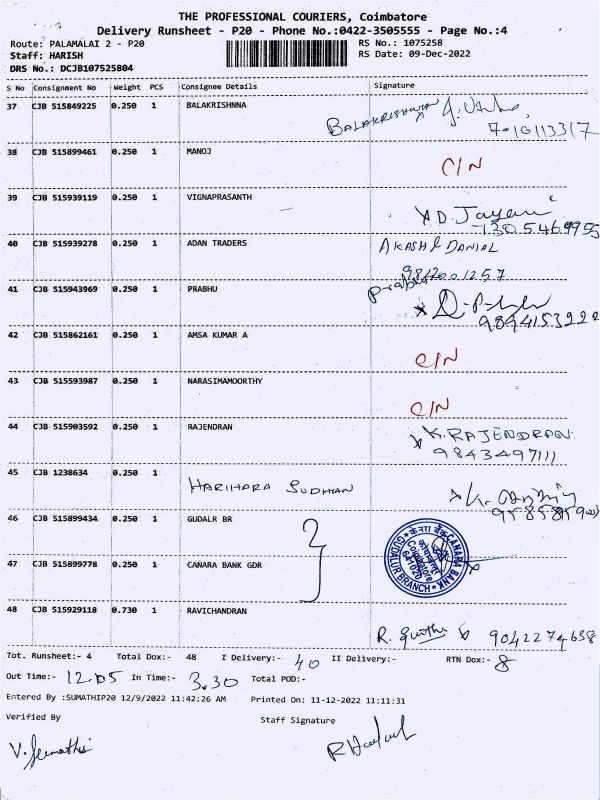 THE PROFESSIONAL COURIERS, Coimbatore
Delivery Runsheet - P20 - Phone No.:0422-3505555 - Page No.:4
Route: PALAMALAI 2 - P20 RS No.: 1075258
Staff: HARISH RS Date: 09-Dec-2022
DRS No.: DCJB107525804
S No Consignment No Weight PCS Consignee Details Signature
37 CJB 515849225 0.250 1 BALAKRISHNNA BALAKRISHNNA
38 CJB 515899461 0.250 1 MANOJ C/N
39 CJB 515939119 0.250 1 VIGNAPRASANTH D. Jayani
40 CJB 515939278 0.250 1 ADAN TRADERS AKASH DANIAL
9842001257
41 CJB 515943969 0.250 1 PRABHU Prabhu
9894153222
42 CJB 515862161 0.250 1 AMSA KUMAR A C/N
43 CJB 515593987 0.250 1 NARASIMAMOORTHY C/N
44 CJB 515903592 0.250 1 RAJENDRAN K. RAJENDRAN
9843497111
45 CJB 1238634 0.250 1 HARIHARA SUDHAN
46 CJB 515899434 0.250 1 GUDALR BR
47 CJB 515899778 0.250 1 CANARA BANK GDR केनरा बैंक CANARA BANK GUDALUR BRANCH Coimbatore 641020
48 CJB 515929118 0.730 1 RAVICHANDRAN
9042274638
Tot. Runsheet:- 4 Total Dox:- 48 I Delivery:- 40 II Delivery:- RTN Dox:- 8
Out Time:- 12.05 In Time:- 3.30 Total POD:-
Entered By :SUMATHIP20 12/9/2022 11:42:26 AM Printed On: 11-12-2022 11:11:31
Verified By Staff Signature
V. Sumathi